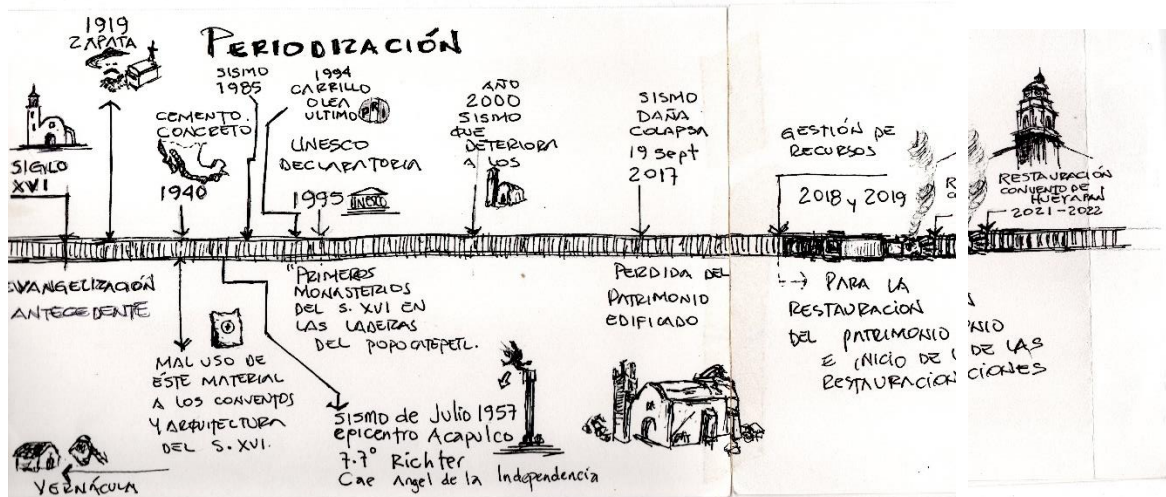 PERIODIZACIÓN
1919
ZAPATA
SIGLO
XVI
CEMENTO.
CONCRETO
1940
SISMO
1985
1994
CARRILLO
OLEA
ULTIMO PRI
UNESCO
DECLARATORIA
1995 UNESCO
AÑO
2000
SISMO
QUE
DETERIORA
A LOS
SISMO
DAÑA
COLAPSA
19 sept
2017
GESTIÓN DE
RECURSOS
2018 y 2019
R
RESTAURACIÓN
CONVENTO DE
HUEYAPAN
2021-2022
EVANGELIZACIÓN
ANTECEDENTE
MAL USO DE
ÉSTE MATERIAL
A LOS CONVENTOS
Y ARQUITECTURA
DEL S. XVI.
VERNÁCULA
"PRIMEROS
MONASTERIOS
DEL S. XVI EN
LAS LADERAS
DEL POPOCATEPETL.
SISMO de Julio 1957
epicentro Acapulco
7.7° Richter
Cae Angel de la Independencia
PERDIDA DEL
PATRIMONIO
EDIFICADO
PARA LA
RESTAURACION
DEL PATRIMONIO
E INICIO DE
RESTAURACION
NIO
DE LAS
CIONES